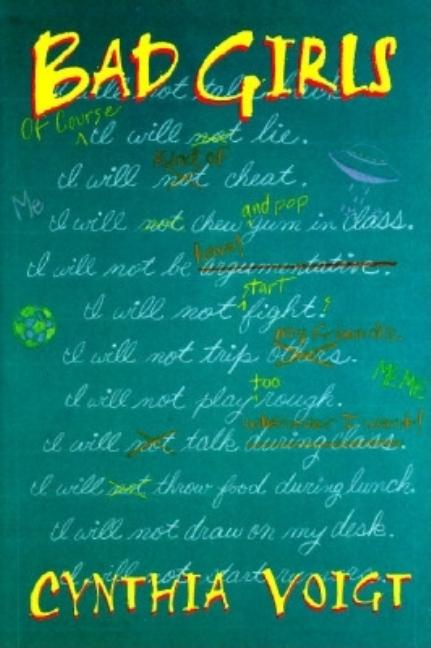 BAD GIRLS
I will not talk back.
Of Course
I will not lie.
Kind of
I will not cheat.
Me
and pop
I will not chew gum in class.
I will not be argumentative.
start
I will not fight!
my friends.
I will not trip others.
ME ME
too
I will not play rough.
whenever I want!
I will not talk during class.
I will not throw food during lunch.
I will not draw on my desk.
I will not start rumors.
CYNTHIA VOIGT